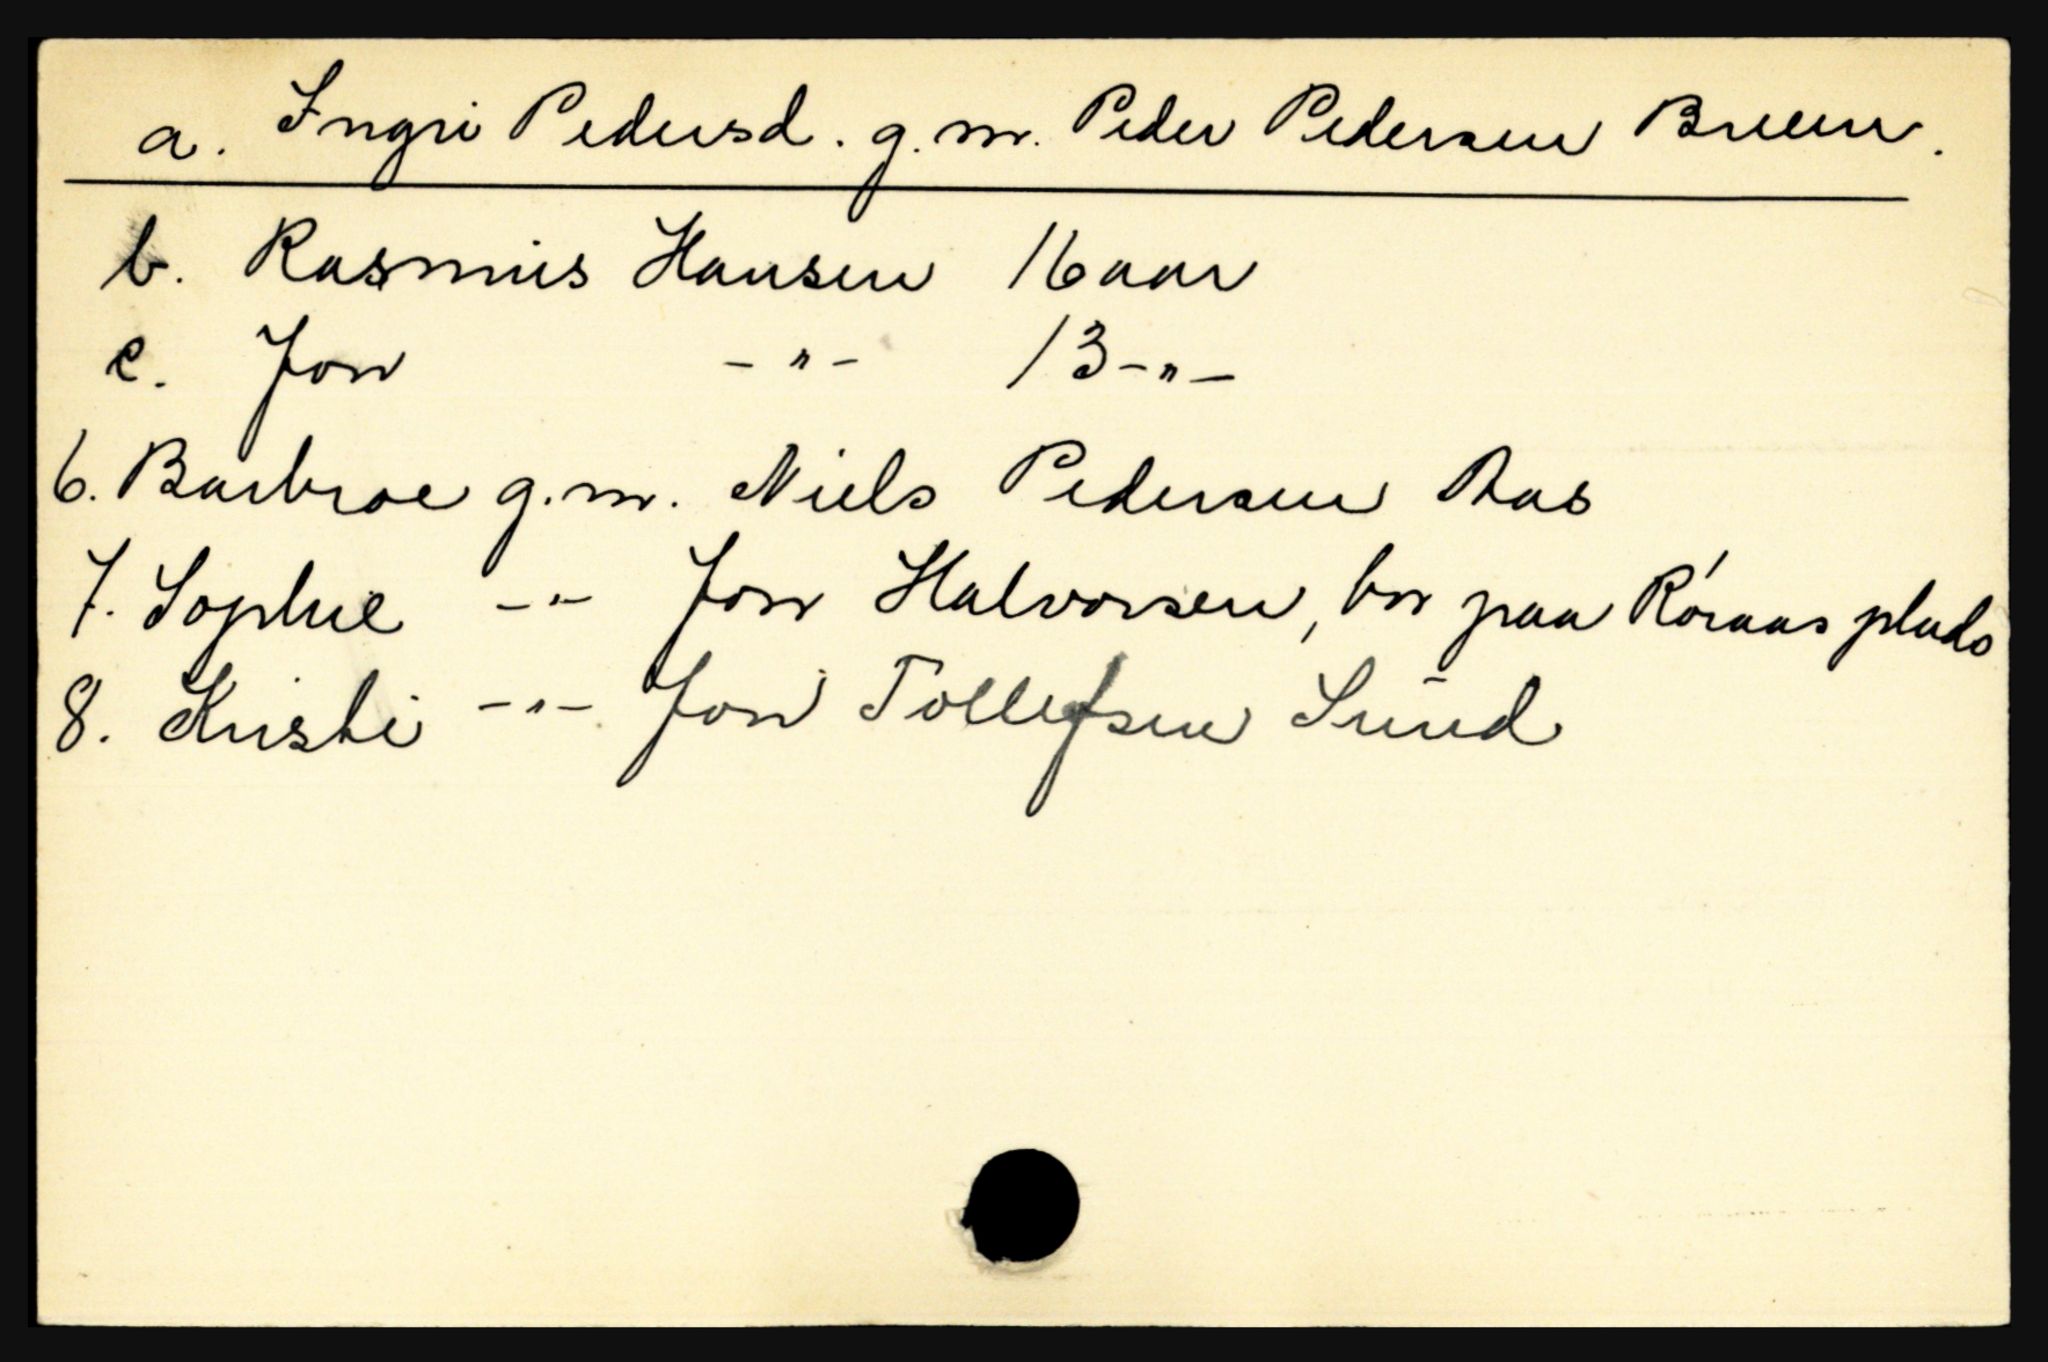 a. Ingri Pedersd. g.m. Peder Pedersen Breen.
b. Rasmus Hansen 16 aar
c. Jon -"- 13 -"-
6. Barbroe g.m. Niels Pedersen Aas
7. Sophie -"- Jon Halvorsen, bor paa Róraas plads
8. Kristi -"- Jon Tollefsen Sund